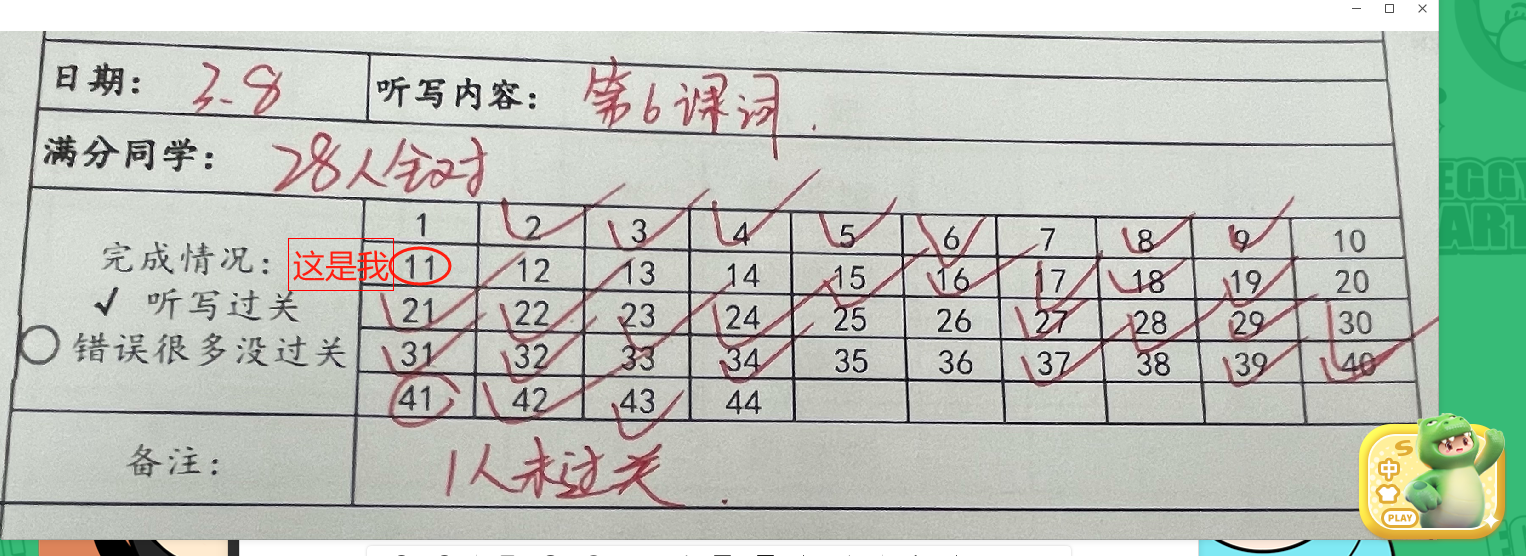 日期： 3.8 听写内容： 第6课词.
满分同学： 28人全对
完成情况：
✓ 听写过关
○ 错误很多没过关
这是我
1 2 3 4 5 6 7 8 9 10
11 12 13 14 15 16 17 18 19 20
21 22 23 24 25 26 27 28 29 30
31 32 33 34 35 36 37 38 39 40
41 42 43 44
备注： 1人未过关.
EGGY
ART
S
中
PLAY